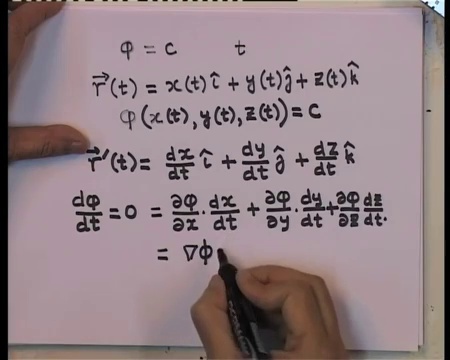 φ = c t
r⃗(t) = x(t) î + y(t) ĵ + z(t) k̂
φ(x(t), y(t), z(t)) = c
r⃗'(t) = dx/dt î + dy/dt ĵ + dz/dt k̂
dφ/dt = 0 = ∂φ/∂x · dx/dt + ∂φ/∂y · dy/dt + ∂φ/∂z dz/dt.
= ∇φ